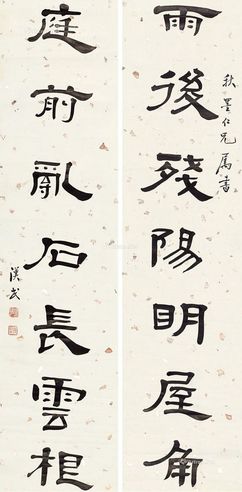 雨後殘陽明屋角
秋墨仁兄屬書
庭前亂石長雲根
漢武